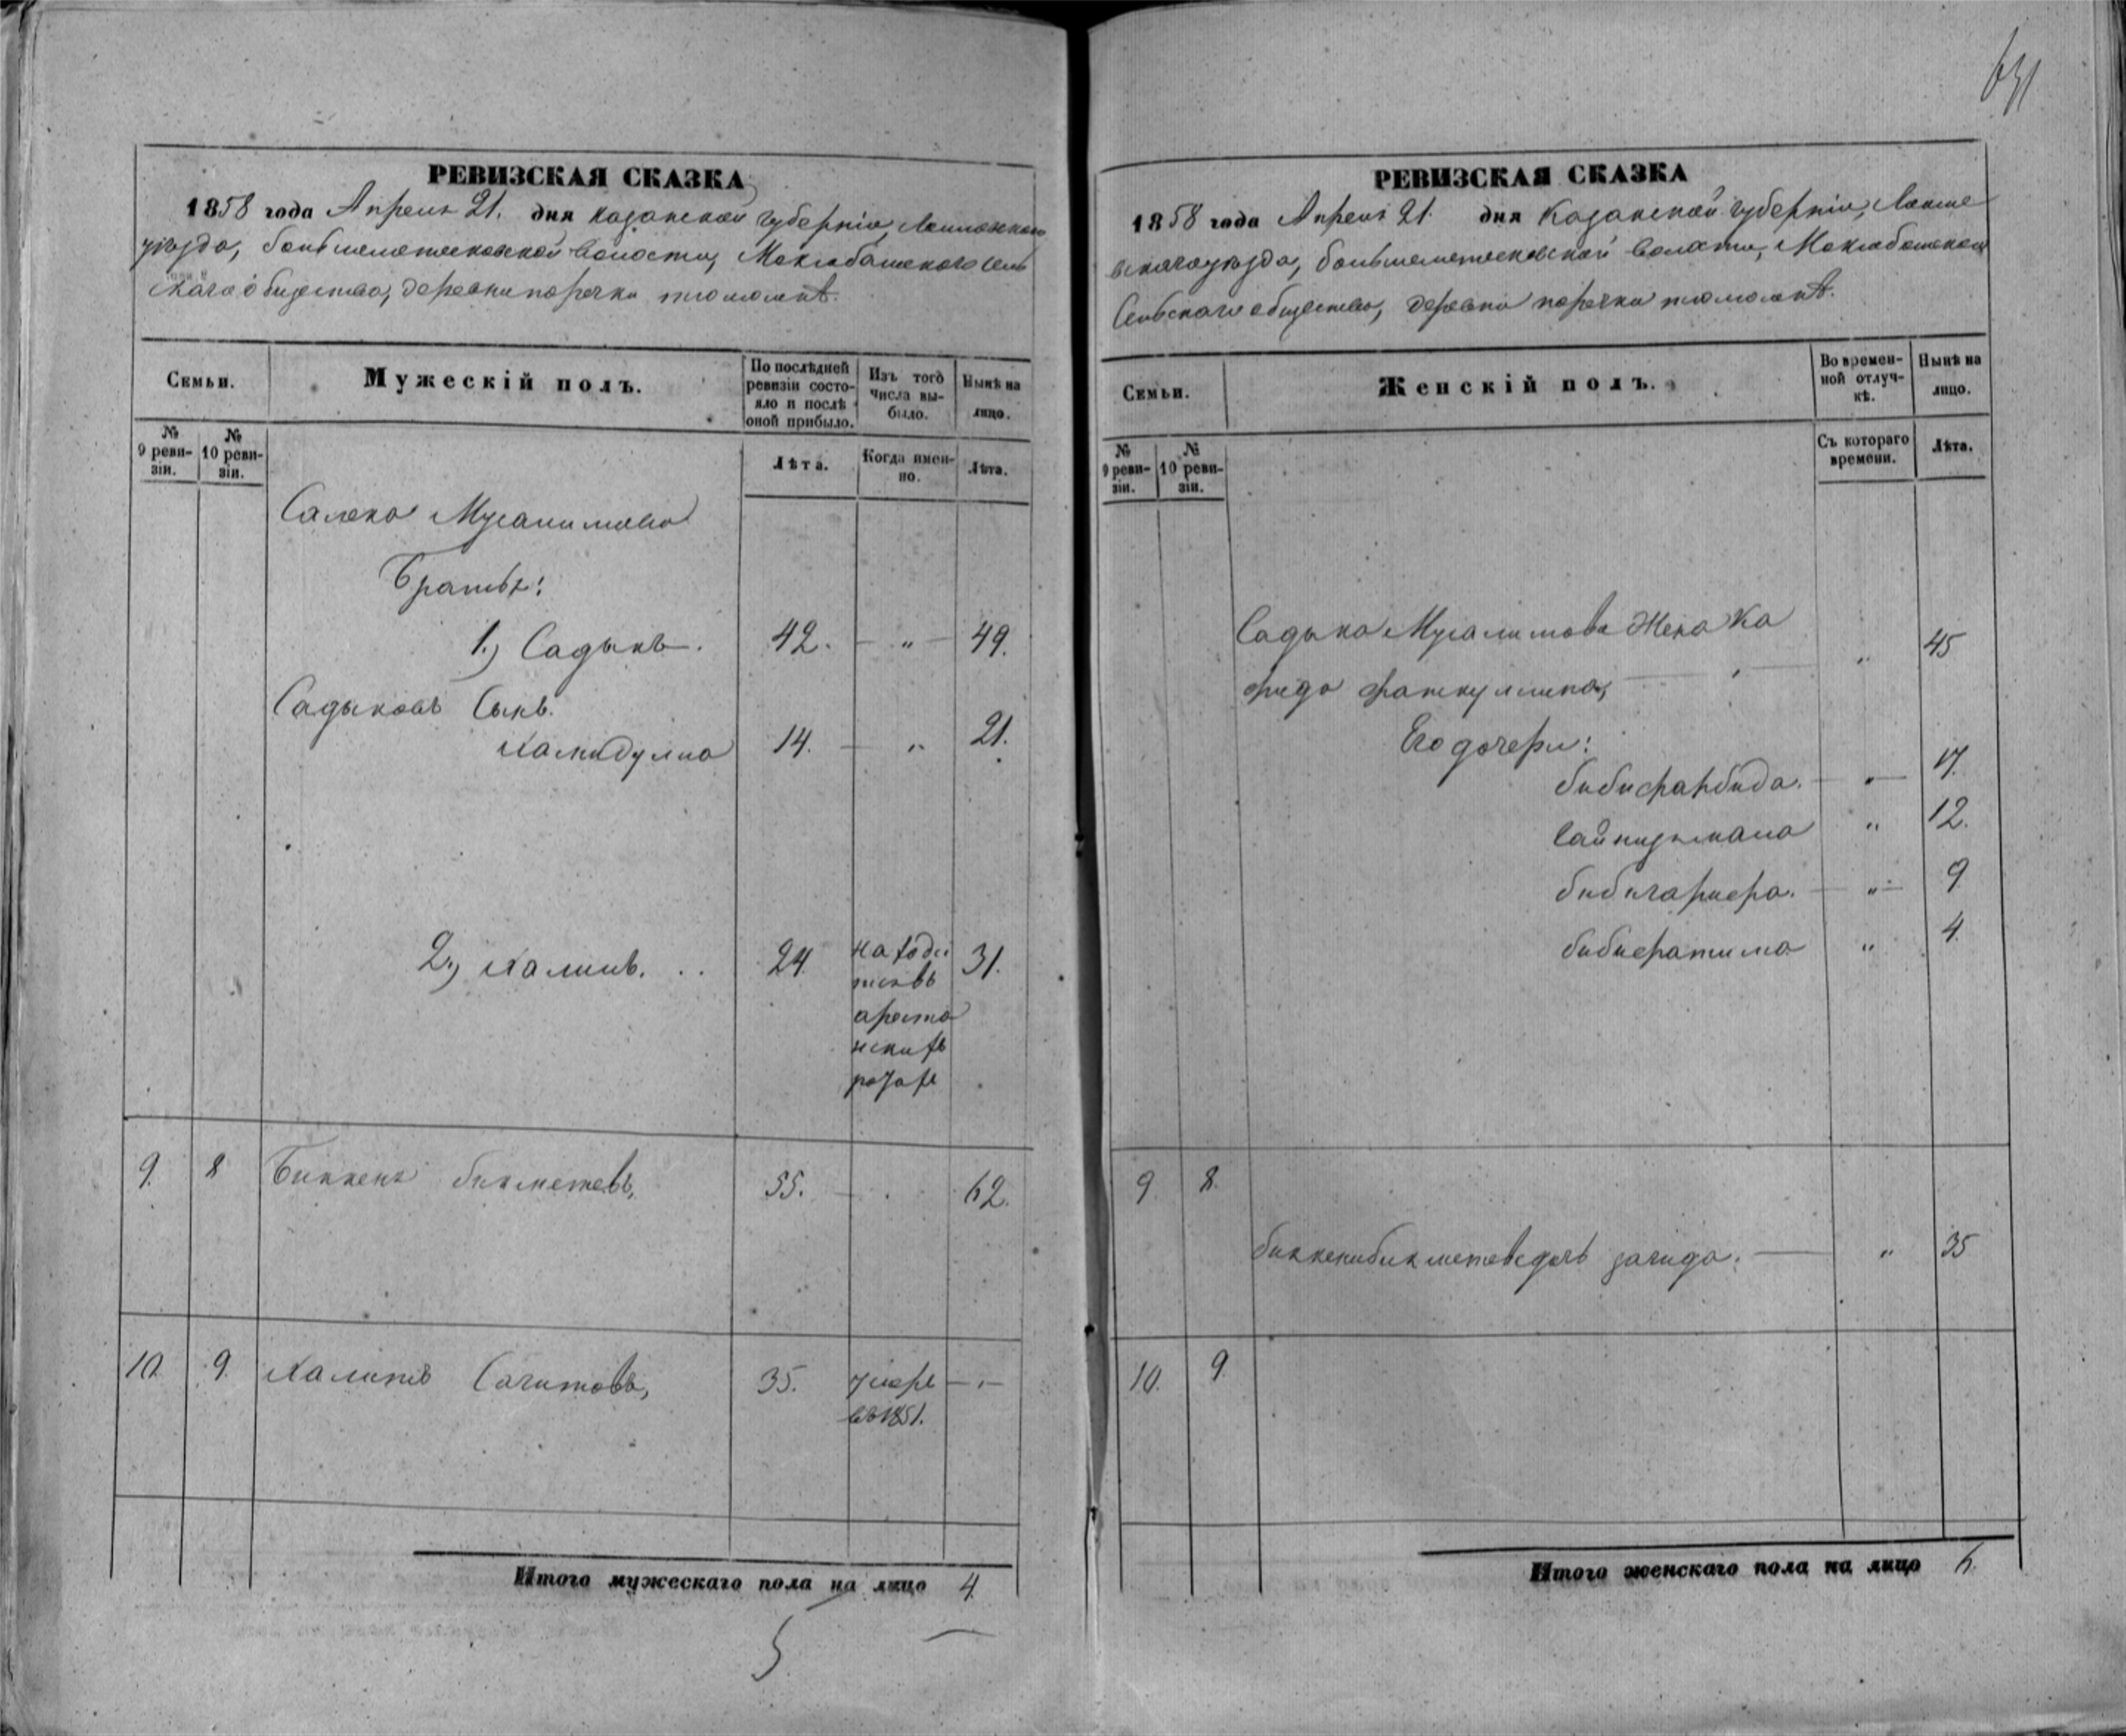 631
РЕВИЗСКАЯ СКАЗКА
1858 года Апреля 21. дня Казанской губерніи, Лаишевского
уѣзда, большеметесковской волости, Маклабашского сель
скаго общества, деревни поречки
Семьи.
Мужескій полъ.
По послѣдней
ревизіи состо-
яло и послѣ
оной прибыло.
Изъ того
числа вы-
было.
Нынѣ на
лицо.
№
9 реви-
зіи.
№
10 реви-
зіи.
Лѣта.
Когда имен-
но.
Лѣта.
Муслимова
Братья:
1.) Садыкъ. 42. — „ — 49.
Садыковъ Сынъ.
Хамидулла 14. — „ 21.
2.) Халилъ. . . 24. 31.
9. 8 Биккеня бикметевъ, 55. — . 62.
10. 9. Халитъ Сагитовъ, 35. умеръ — „ —
въ 1851.
Итого мужескаго пола на лицо 4.
5
РЕВИЗСКАЯ СКАЗКА
1858 года Апреля 21. дня Казанской губерніи, Лаише
вскаго уѣзда, большеметесковской волости, Маклабашского
Сельскаго общества, деревни поречки
Семьи.
Женскій полъ.
Во времен-
ной отлуч-
кѣ.
Нынѣ на
лицо.
№
9 реви-
зіи.
№
10 реви-
зіи.
Съ котораго
времени.
Лѣта.
Садыка Муслимова жена „ 45
Его дочери:
— „ — 17.
„ 12.
— „ — 9
бибифатима „ 4.
9 8.
биккени бикметева дочь загида. — „ 35
10. 9.
Итого женскаго пола на лицо 6.